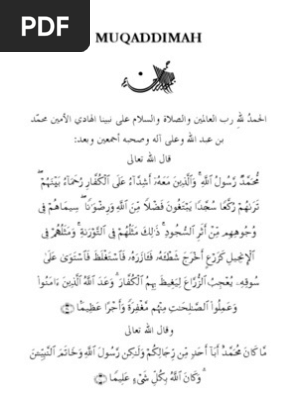 PDF
MUQADDIMAH
الحمدُ للهِ رب العالمين والصلاة والسلام على نبينا الهادي الأمين محمّد
بن عبد الله وعلى آله وصحبه أجمعين وبعد:
قال الله تعالى
مُّحَمَّدٌ رَّسُولُ ٱللَّهِ ۚ وَٱلَّذِينَ مَعَهُۥٓ أَشِدَّآءُ عَلَى ٱلْكُفَّارِ رُحَمَآءُ بَيْنَهُمْ ۖ
تَرَىٰهُمْ رُكَّعًا سُجَّدًا يَبْتَغُونَ فَضْلًا مِّنَ ٱللَّهِ وَرِضْوَٰنًا ۖ سِيمَاهُمْ فِى
وُجُوهِهِم مِّنْ أَثَرِ ٱلسُّجُودِ ۚ ذَٰلِكَ مَثَلُهُمْ فِى ٱلتَّوْرَىٰةِ ۚ وَمَثَلُهُمْ فِى
ٱلْإِنجِيلِ كَزَرْعٍ أَخْرَجَ شَطْـَٔهُۥ فَـَٔازَرَهُۥ فَٱسْتَغْلَظَ فَٱسْتَوَىٰ عَلَىٰ
سُوقِهِۦ يُعْجِبُ ٱلزُّرَّاعَ لِيَغِيظَ بِهِمُ ٱلْكُفَّارَ ۗ وَعَدَ ٱللَّهُ ٱلَّذِينَ ءَامَنُوا۟
وَعَمِلُوا۟ ٱلصَّٰلِحَٰتِ مِنْهُم مَّغْفِرَةً وَأَجْرًا عَظِيمًۢا
وقال الله تعالى
مَّا كَانَ مُحَمَّدٌ أَبَآ أَحَدٍ مِّن رِّجَالِكُمْ وَلَٰكِن رَّسُولَ ٱللَّهِ وَخَاتَمَ ٱلنَّبِيِّـۧنَ
ۗ وَكَانَ ٱللَّهُ بِكُلِّ شَىْءٍ عَلِيمًا